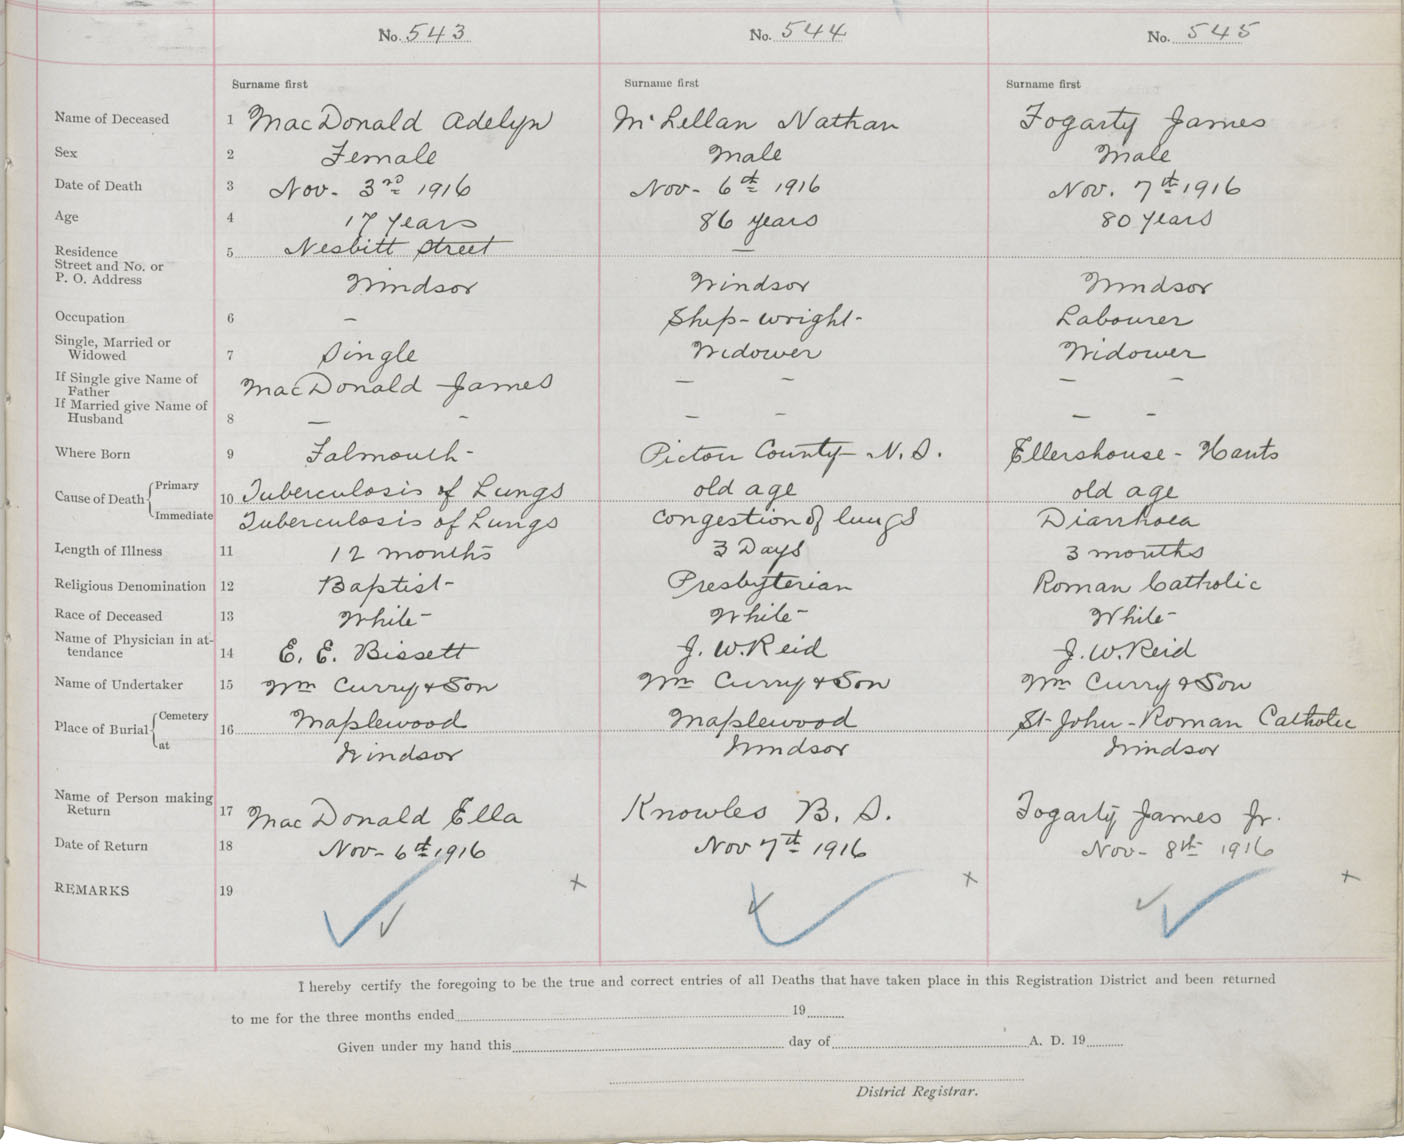 No. 543 No. 544 No. 545
Surname first Surname first Surname first
Name of Deceased 1 MacDonald Adelyn McLellan Nathan Fogarty James
Sex 2 Female Male Male
Date of Death 3 Nov- 3rd 1916 Nov- 6th 1916 Nov. 7th 1916
Age 4 17 years 86 years 80 years
Residence 5 Nesbitt Street —
Street and No. or
P. O. Address Windsor Windsor Windsor
Occupation 6 — Ship-wright- Labourer
Single, Married or
Widowed 7 Single Widower Widower
If Single give Name of
Father MacDonald James — - — -
If Married give Name of
Husband 8 — - — - — -
Where Born 9 Falmouth- Pictou County- N.S. Ellershouse - Hants
Cause of Death Primary 10 Tuberculosis of Lungs old age old age
Immediate Tuberculosis of Lungs Congestion of lungs Diarrhoea
Length of Illness 11 12 months 3 Days 3 months
Religious Denomination 12 Baptist- Presbyterian Roman Catholic
Race of Deceased 13 White- White- White-
Name of Physician in at-
tendance 14 E. E. Bissett J. W. Reid J. W. Reid
Name of Undertaker 15 Wm Curry & Son Wm Curry & Son Wm Curry & Son
Place of Burial Cemetery 16 Maplewood Maplewood St- John - Roman Catholic
at Windsor Windsor Windsor
Name of Person making
Return 17 MacDonald Ella Knowles B. S. Fogarty James Jr.
Date of Return 18 Nov- 6th 1916 Nov 7th 1916 Nov- 8th 1916
REMARKS 19 x x x
I hereby certify the foregoing to be the true and correct entries of all Deaths that have taken place in this Registration District and been returned
to me for the three months ended 19
Given under my hand this day of A. D. 19
District Registrar.